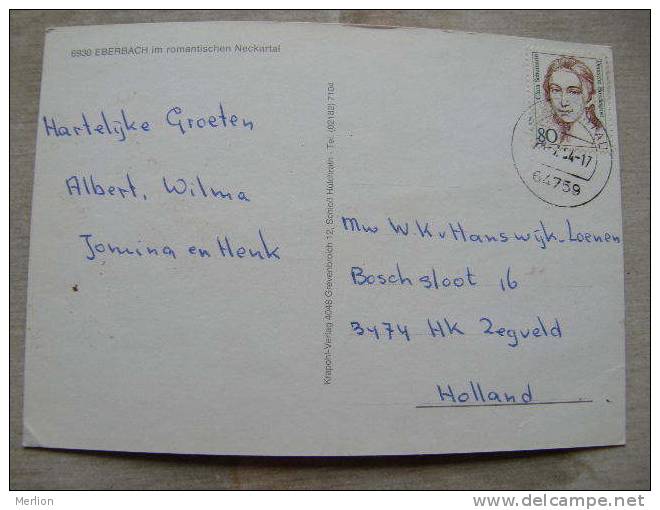 6930 EBERBACH im romantischen Neckartal
Hartelijke Groeten
Albert, Wilma
Jomina en Henk
Krapohl-Verlag 4048 Grevenbroich 12, Schloß Hülchrath · Tel. (02182) 7104
Clara Schumann
Deutsche Bundespost
80
-17
64759
Mw W K v Hanswijk-Loenen
Boschsloot 16
3474 HK Zegveld
Holland
Merlion
www.delcampe.net